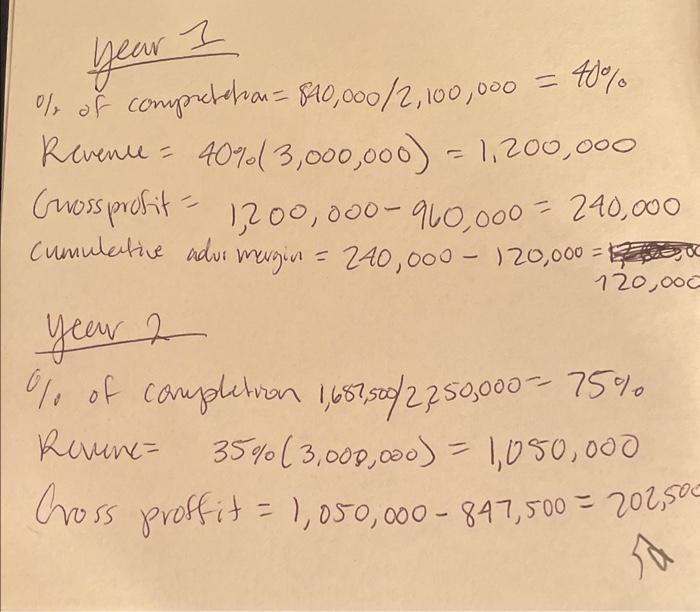 year 1
% of completion = 840,000/2,100,000 = 40%
Revenue = 40%(3,000,000) = 1,200,000
Gross profit = 1,200,000 - 960,000 = 240,000
Cumulative adv margin = 240,000 - 120,000 =
120,000
year 2
% of completion 1,687,500/2,250,000 = 75%
Revune = 35%(3,000,000) = 1,050,000
Gross proffit = 1,050,000 - 847,500 = 202,500